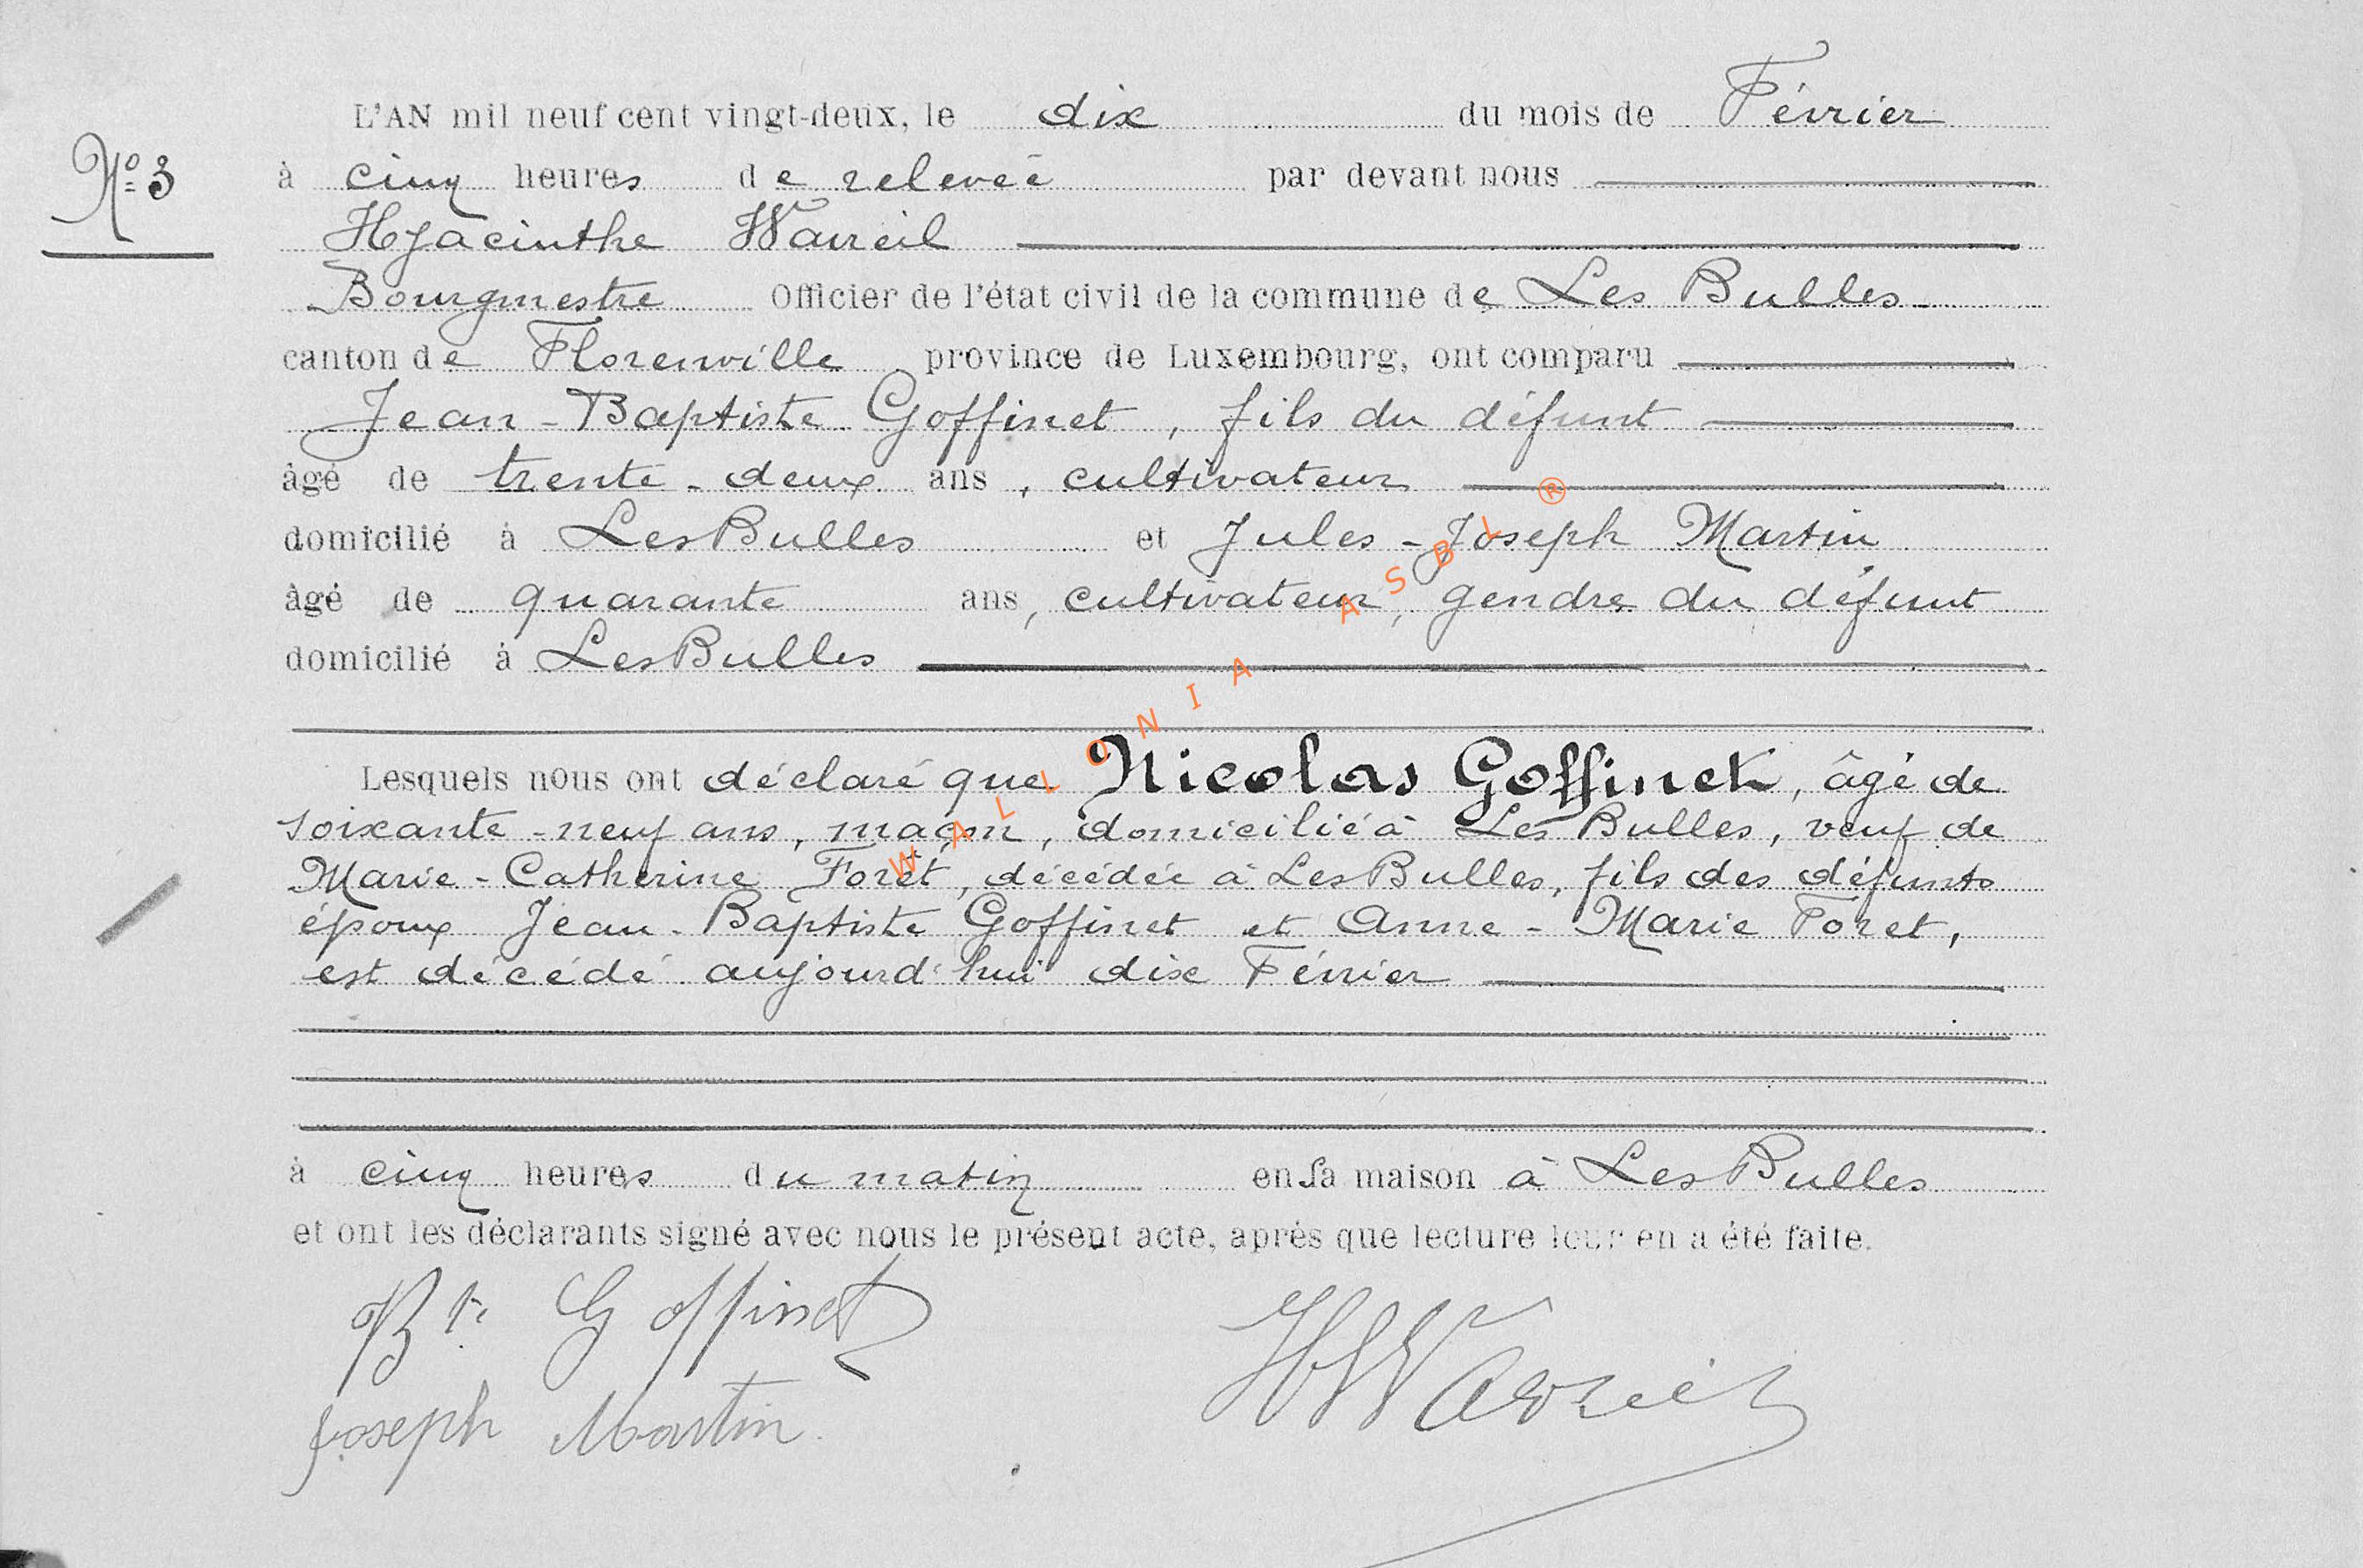 L'AN mil neuf cent vingt-deux, le dix du mois de Février
N° 3
à cinq heures de relevée par devant nous
Hyacinthe Wavreil
Bourgmestre Officier de l'état civil de la commune de Les Bulles
canton de Florenville province de Luxembourg, ont comparu
Jean-Baptiste Goffinet, fils du défunt
âgé de trente-deux ans, cultivateur
domicilié à Les Bulles et Jules-Joseph Martin
âgé de quarante ans, cultivateur, gendre du défunt
domicilié à Les Bulles
Lesquels nous ont déclaré que Nicolas Goffinet, âgé de
soixante-neuf ans, maçon, domicilié à Les Bulles, veuf de
Marie-Catherine Forêt, décédée à Les Bulles, fils des défunts
époux Jean-Baptiste Goffinet et Anne-Marie Foret,
est décédé aujourd'hui dix Février
à cinq heures du matin en sa maison à Les Bulles
et ont les déclarants signé avec nous le présent acte, après que lecture leur en a été faite.
Bte Goffinet
Joseph Martin
WALLONIA ASBL ®